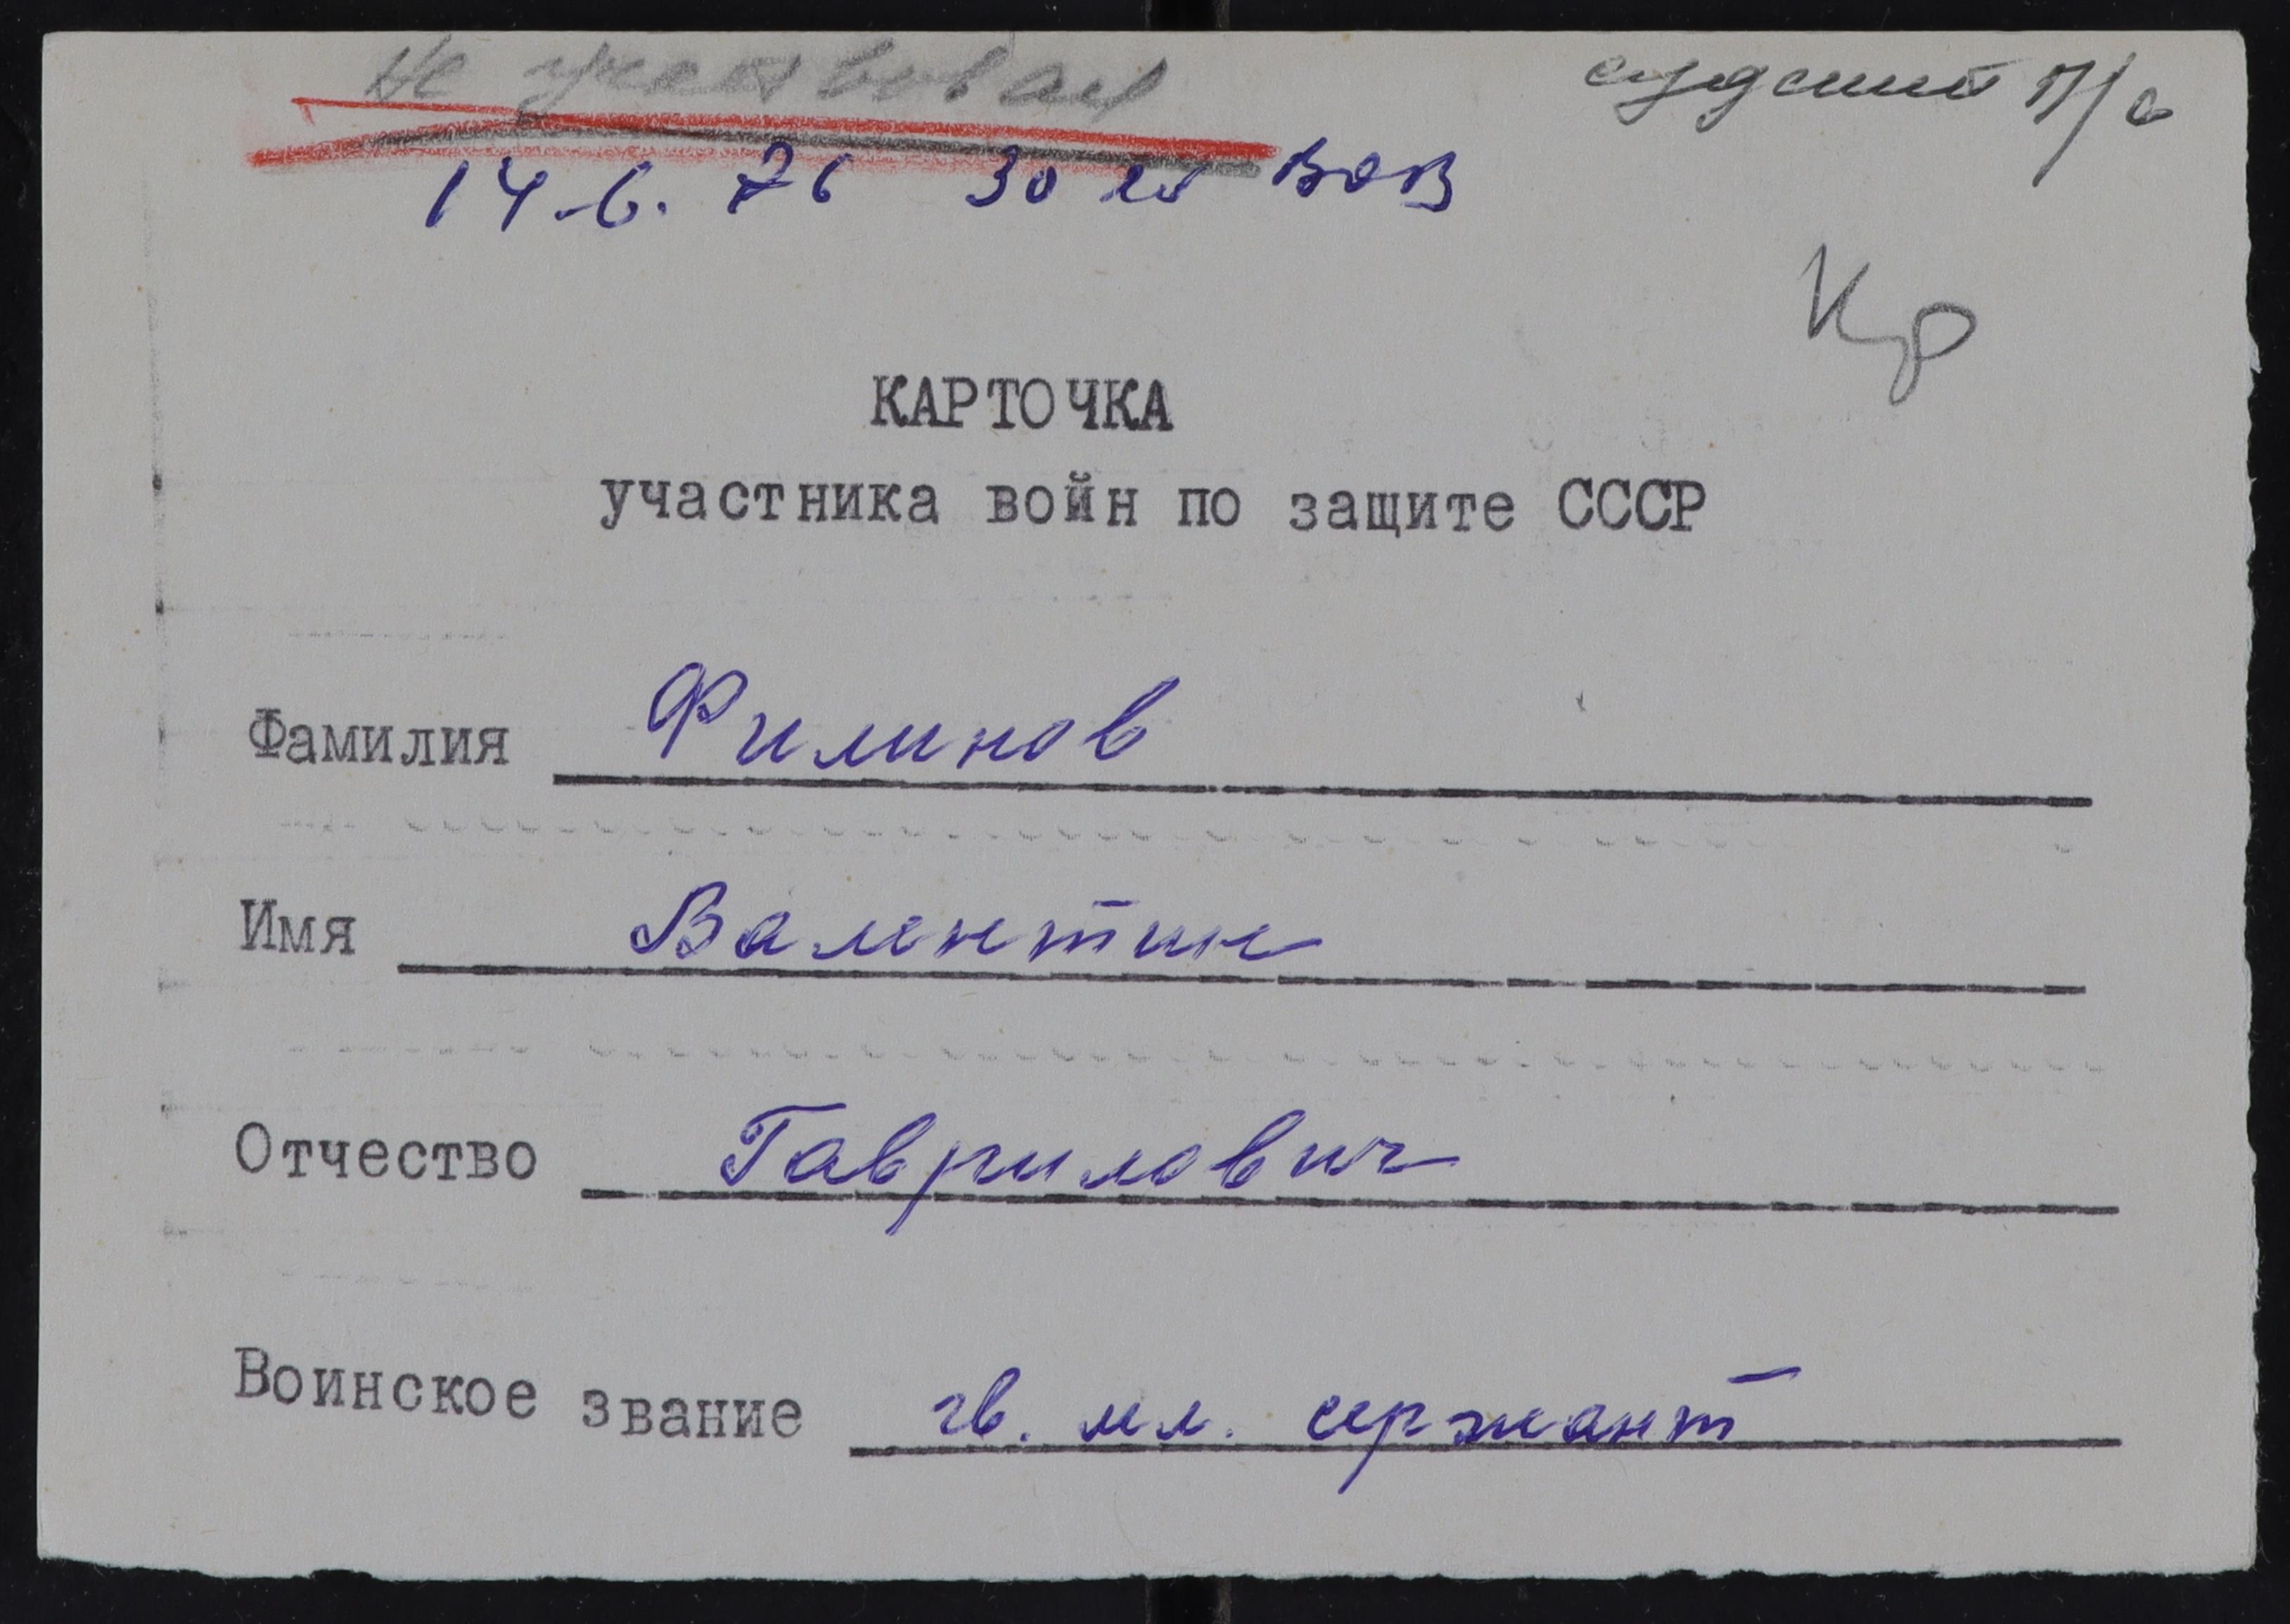 Не участвовал
судский п/с
14.6.76 30 лет ВОВ
Кр
КАРТОЧКА
участника войн по защите СССР
Фамилия Филинов
Имя Валентин
Отчество Гаврилович
Воинское звание гв. мл. сержант